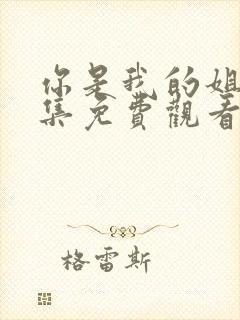 你是我的姐
集免費觀看
格雷斯